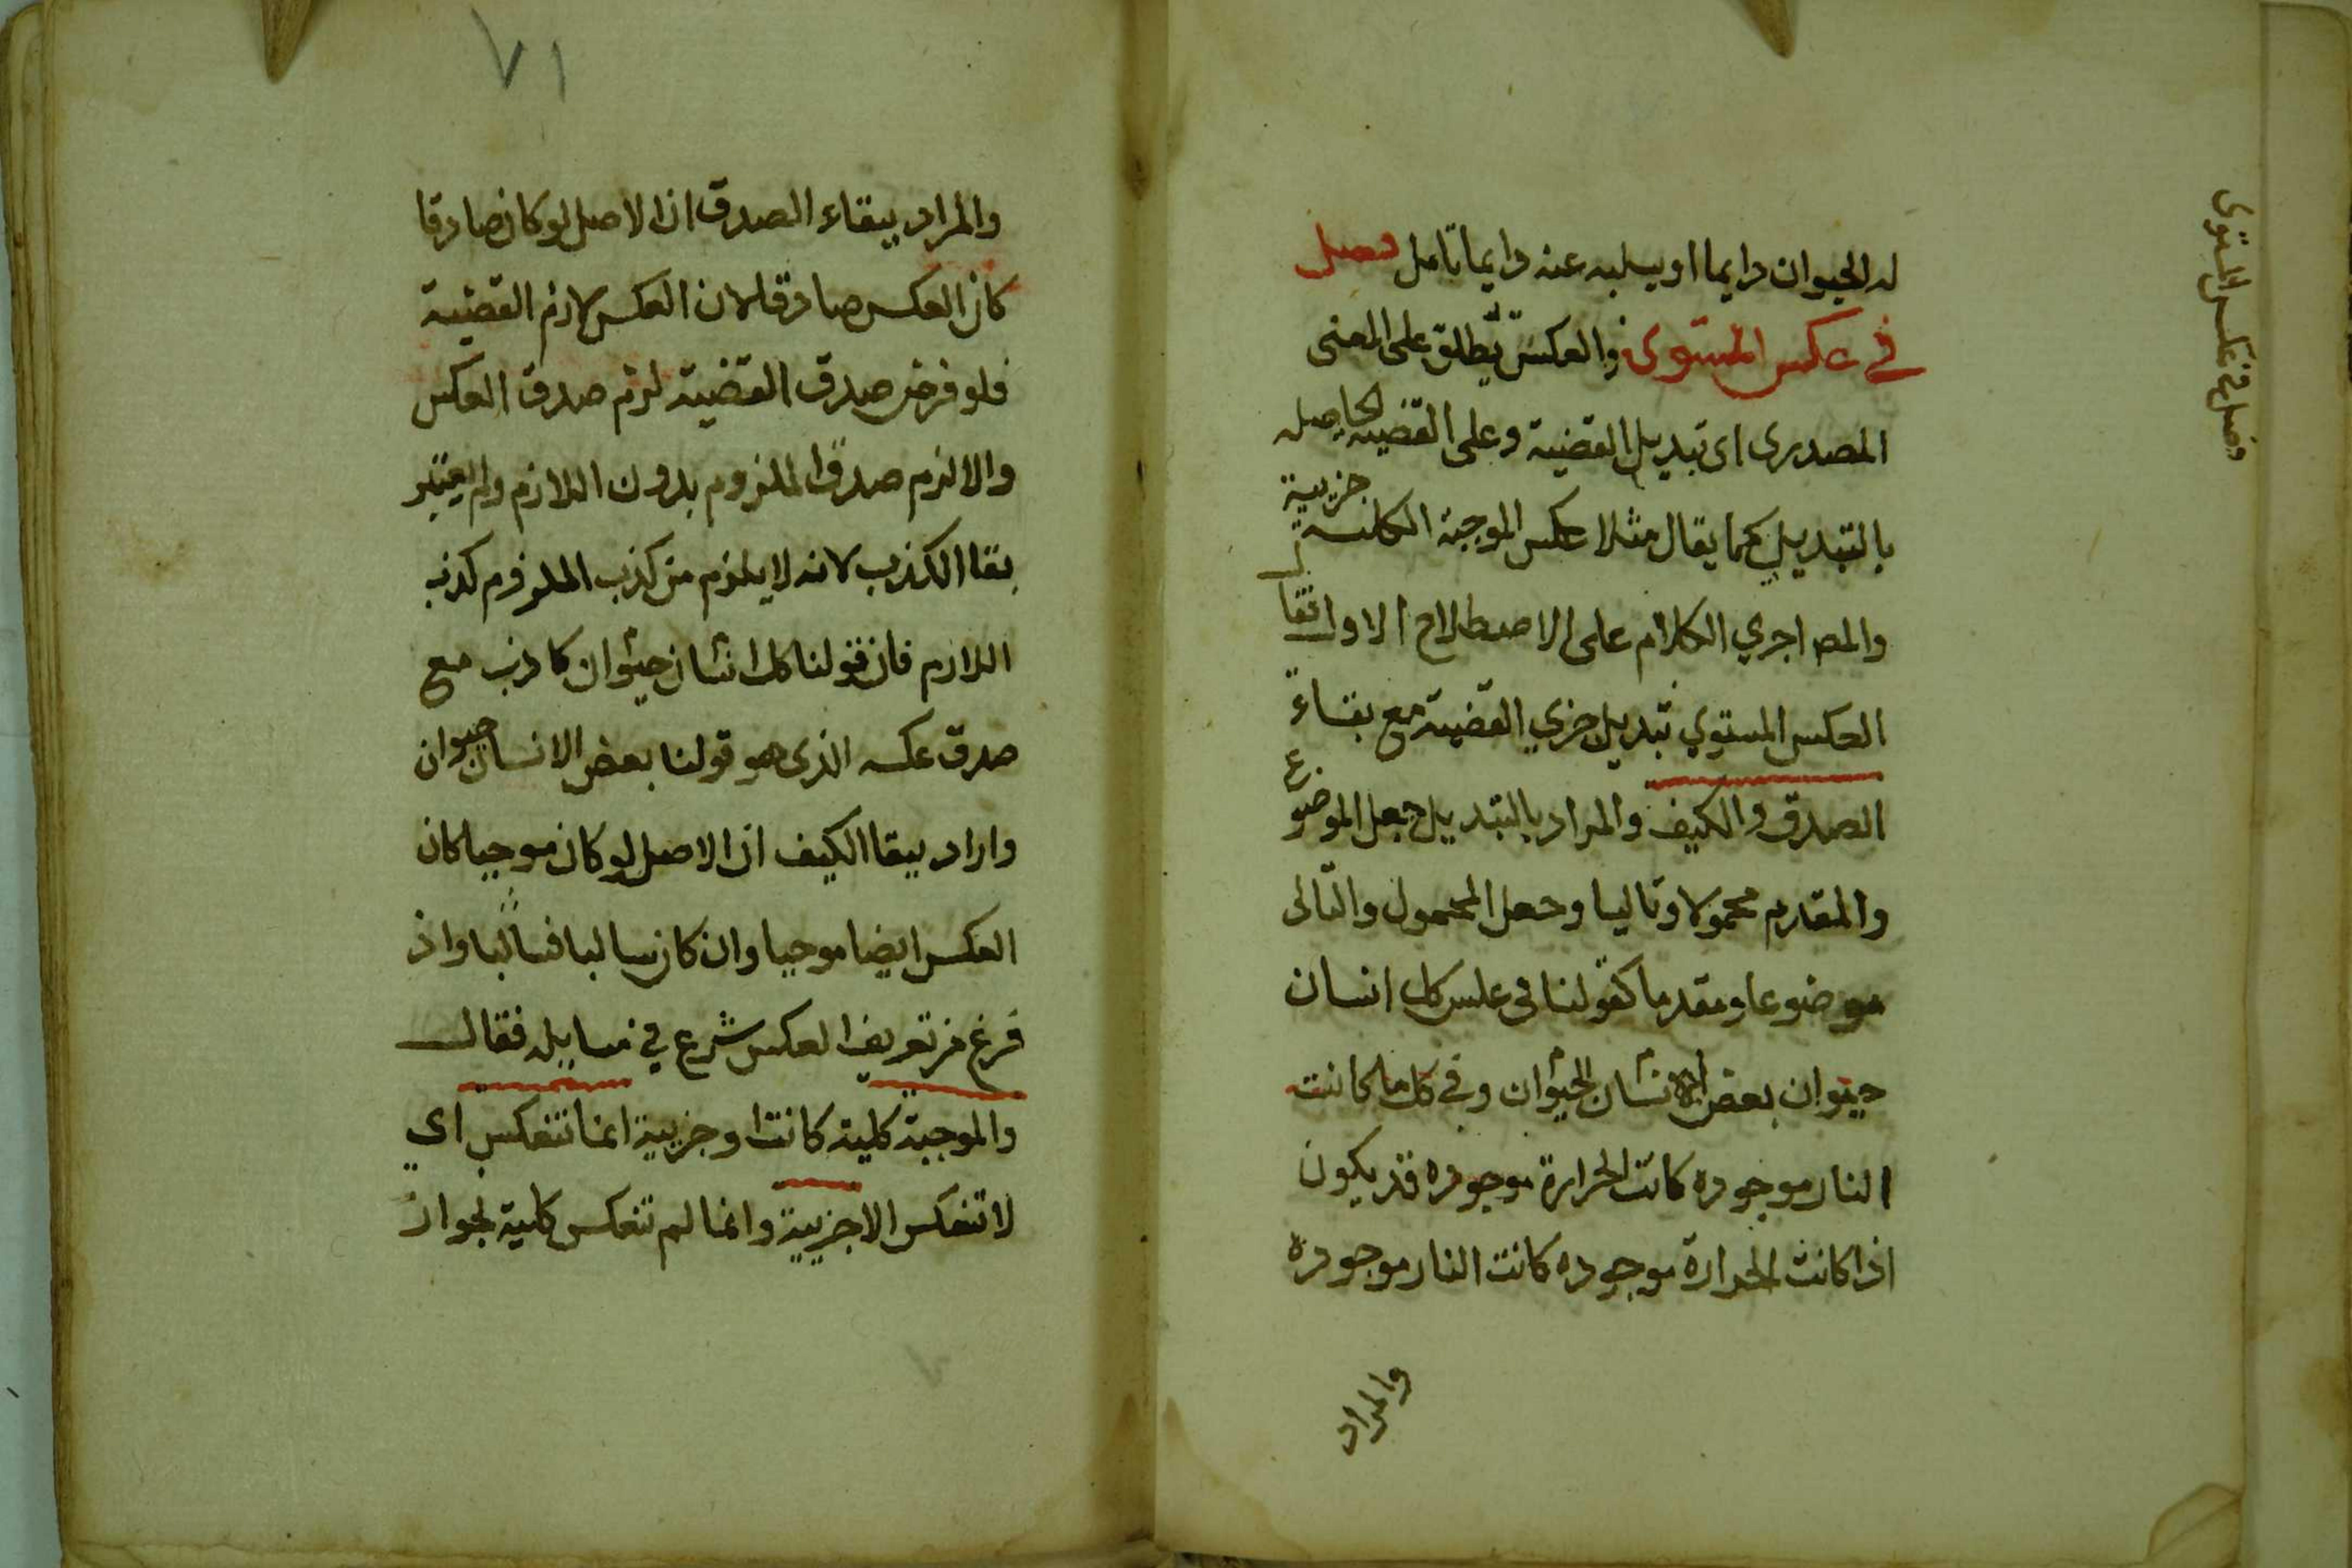 له الحيوان دايما او يسلبه عنه دايما تامل فصل
في عكس المستوى والعكس يطلق على المعنى
المصدرى اى تبديل القضية وعلى القضية الحاصله
بالتبديل كما يقال مثلا عكس الموجبة الكلية جزيية
والمصـ اجري الكلام على الاصطلاح الاول فقا
العكس المستوي تبديل جزي القضية مع بقاء
الصدق والكيف والمراد بالتبديل جعل الموضوع
والمقدم محمولا وتاليا وجعل المحمول والتالى
موضوعا ومقدما كقولنا فى عكس كل انسان
حيوان بعض الانسان الحيوان وفي كل ما كانت
النار موجوده كانت الحرارة موجوده قد يكون
اذا كانت الحرارة موجوده كانت النار موجوده
والمراد
فصل في عكس المستوى
٧١
والمراد ببقاء الصدق ان الاصل لو كان صادقا
كان العكس صادقا لان العكس لازم القضية
فلو فرض صدق القضية لزم صدق العكس
والا لزم صدق الملزوم بدون اللازم ولم يعتبر
بقا الكذب لانه لا يلزم من كذب الملزوم كذب
اللازم فان قولنا كل انسان حيوان كاذب مع
صدق عكسه الذى هو قولنا بعض الانسان حيوان
واراد ببقا الكيف ان الاصل لو كان موجبا كان
العكس ايضا موجبا وان كان سالبا فسالبا واذ
فرغ من تعريف العكس شرع في مسايله فقال
والموجبة كلية كانت او جزيية انما تنعكس اي
لا تنعكس الا جزيية وانما لم تنعكس كلية لجواز